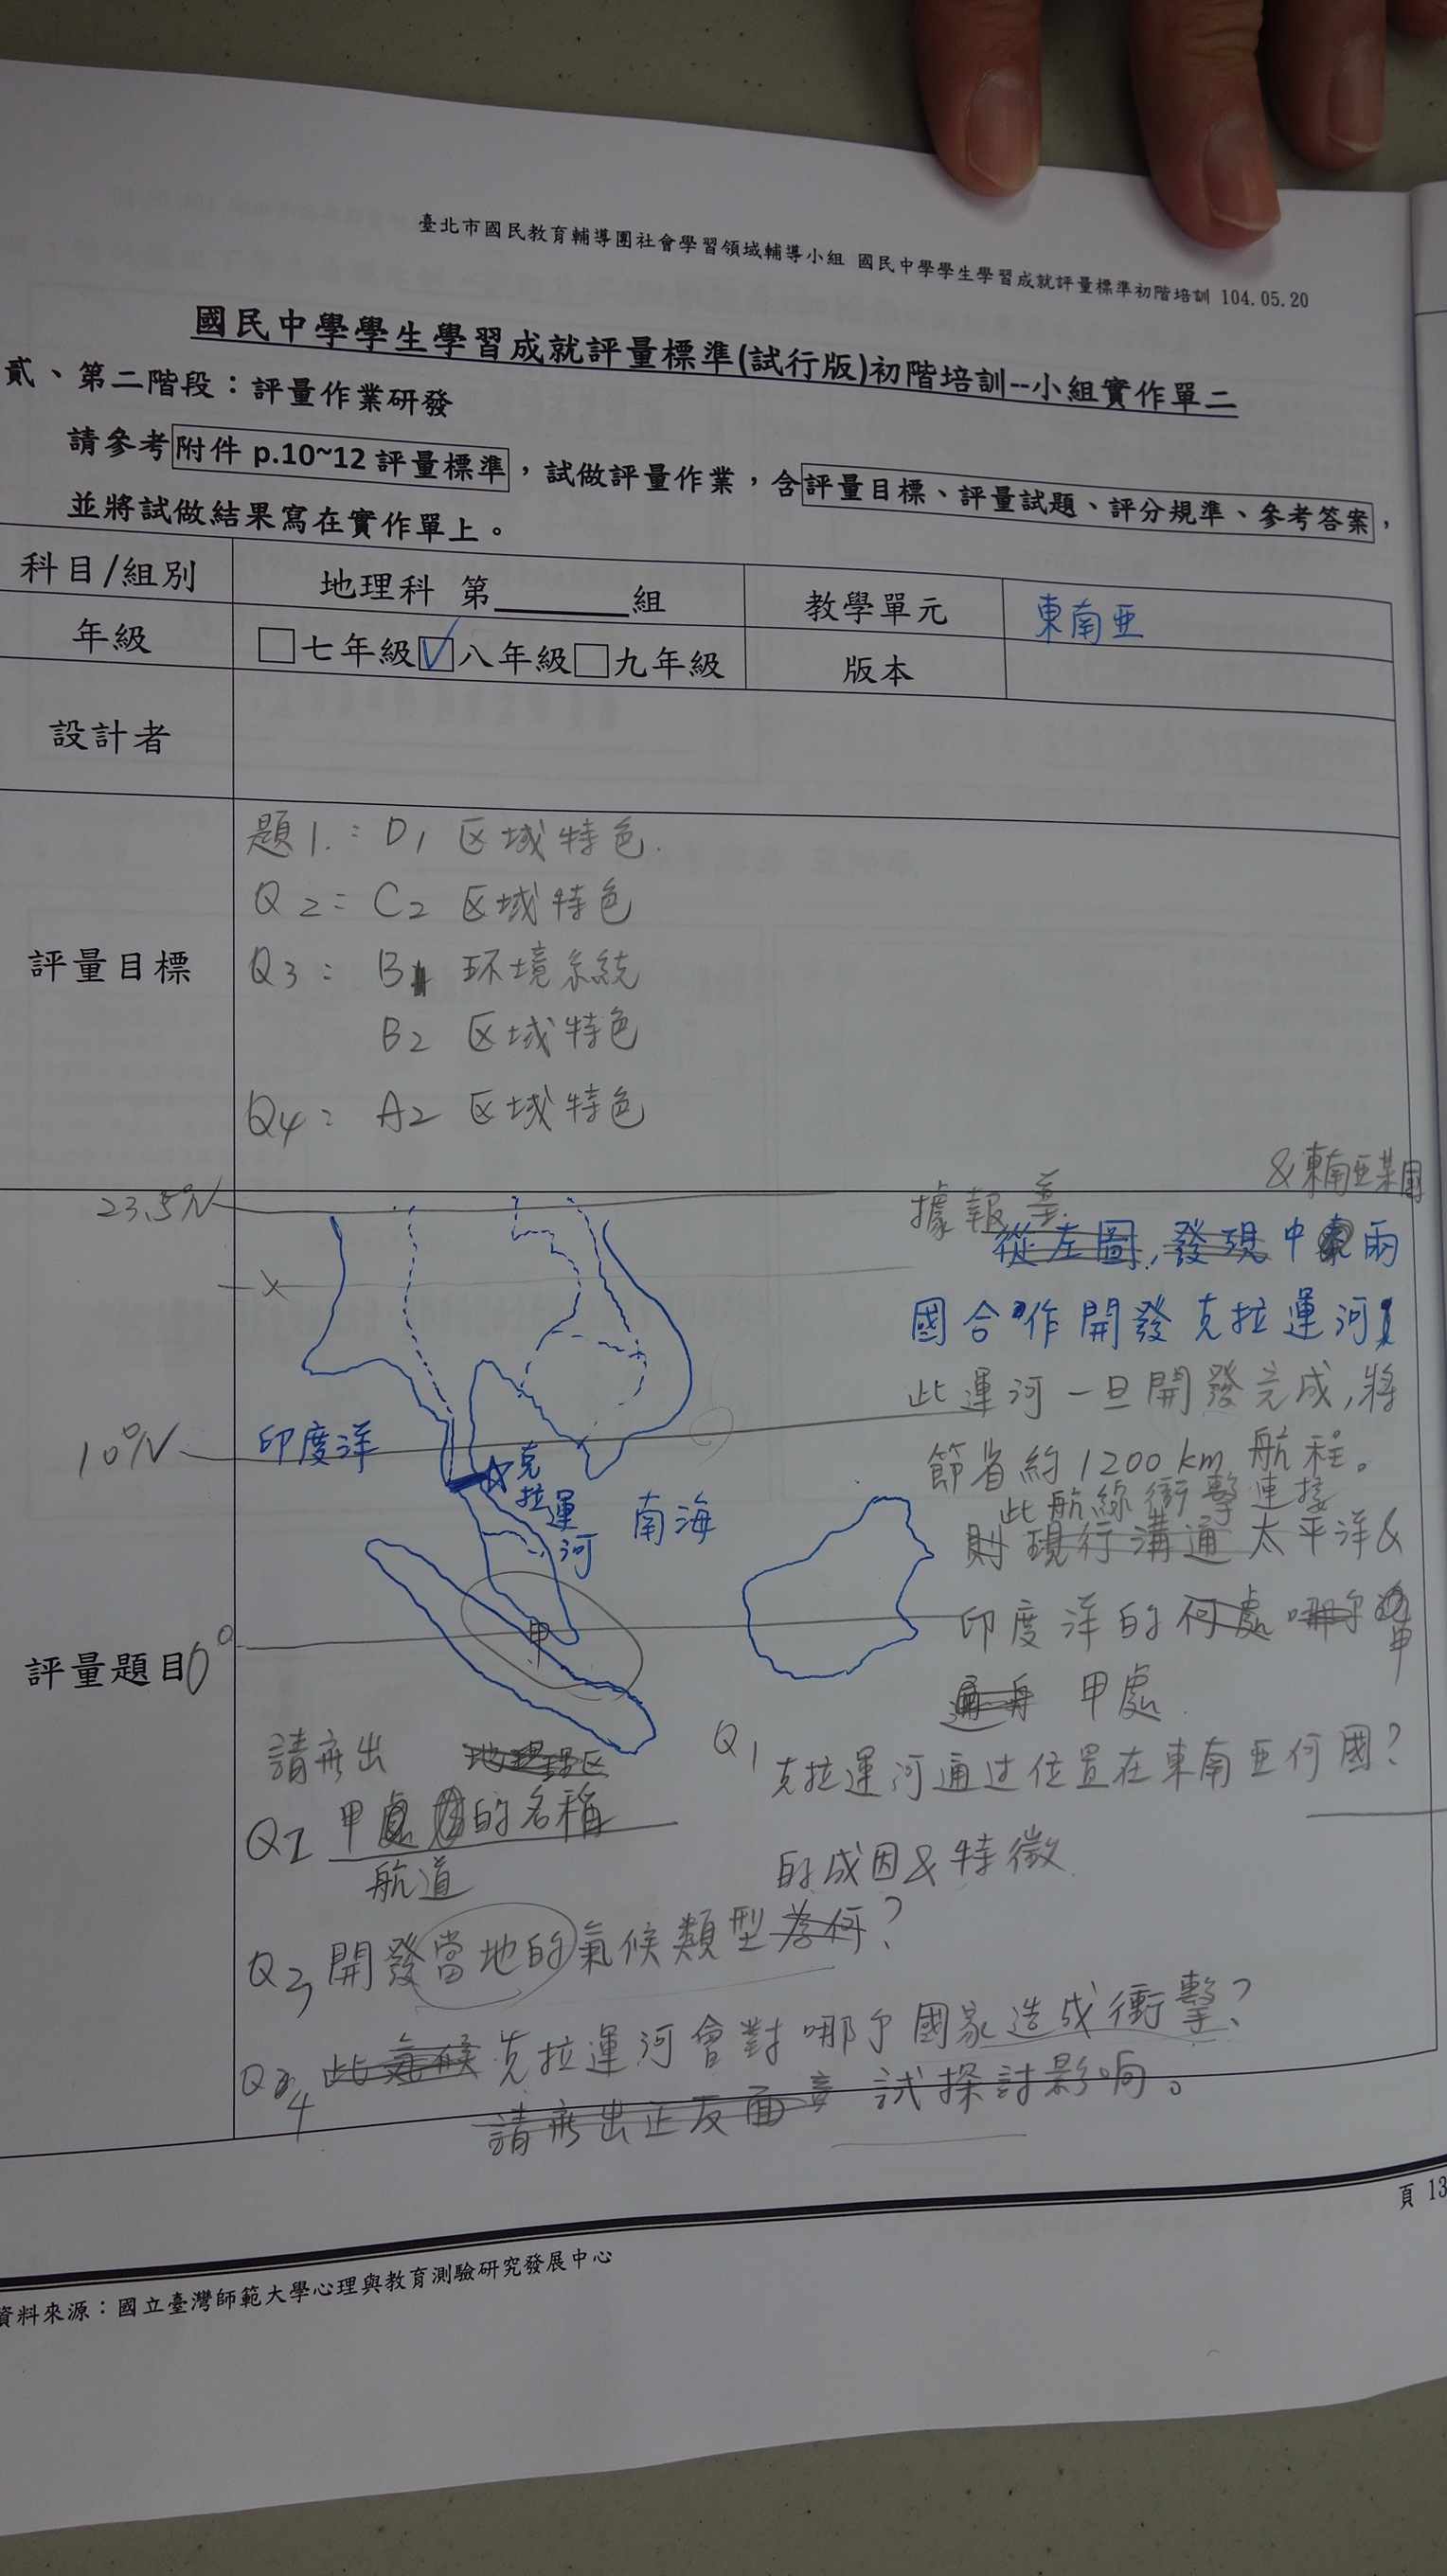 臺北市國民教育輔導團社會學習領域輔導小組 國民中學學生學習成就評量標準初階培訓 104.05.20
國民中學學生學習成就評量標準(試行版)初階培訓--小組實作單二
貳、第二階段：評量作業研發
請參考附件 p.10~12 評量標準，試做評量作業，含評量目標、評量試題、評分規準、參考答案，
並將試做結果寫在實作單上。
科目/組別 地理科 第 組 教學單元 東南亞
年級 七年級 八年級 九年級 版本
設計者
評量目標
題1.: D1 区域特色.
Q2: C2 区域特色
Q3: B 环境系統
B2 区域特色
Q4: A2 区域特色
評量題目
23.5°N
10°N
0°
印度洋
克拉運河
南海
甲
&東南亞某國
據報導.
從左圖,發現中 兩
國合作開發克拉運河
此運河一旦開發完成,將
節省約1200km航程。
此航線衝擊連接
則現行溝通太平洋&
印度洋的何處 甲
甲處.
Q1 克拉運河通过位置在東南亞何國?
請寫出
Q2 甲處 的名稱
航道
的成因&特徵
Q3 開發當地的氣候類型為何?
Q4 此氣候克拉運河會對哪个國家造成衝擊?
請寫出正反面 試探討影响。
頁 13
資料來源：國立臺灣師範大學心理與教育測驗研究發展中心